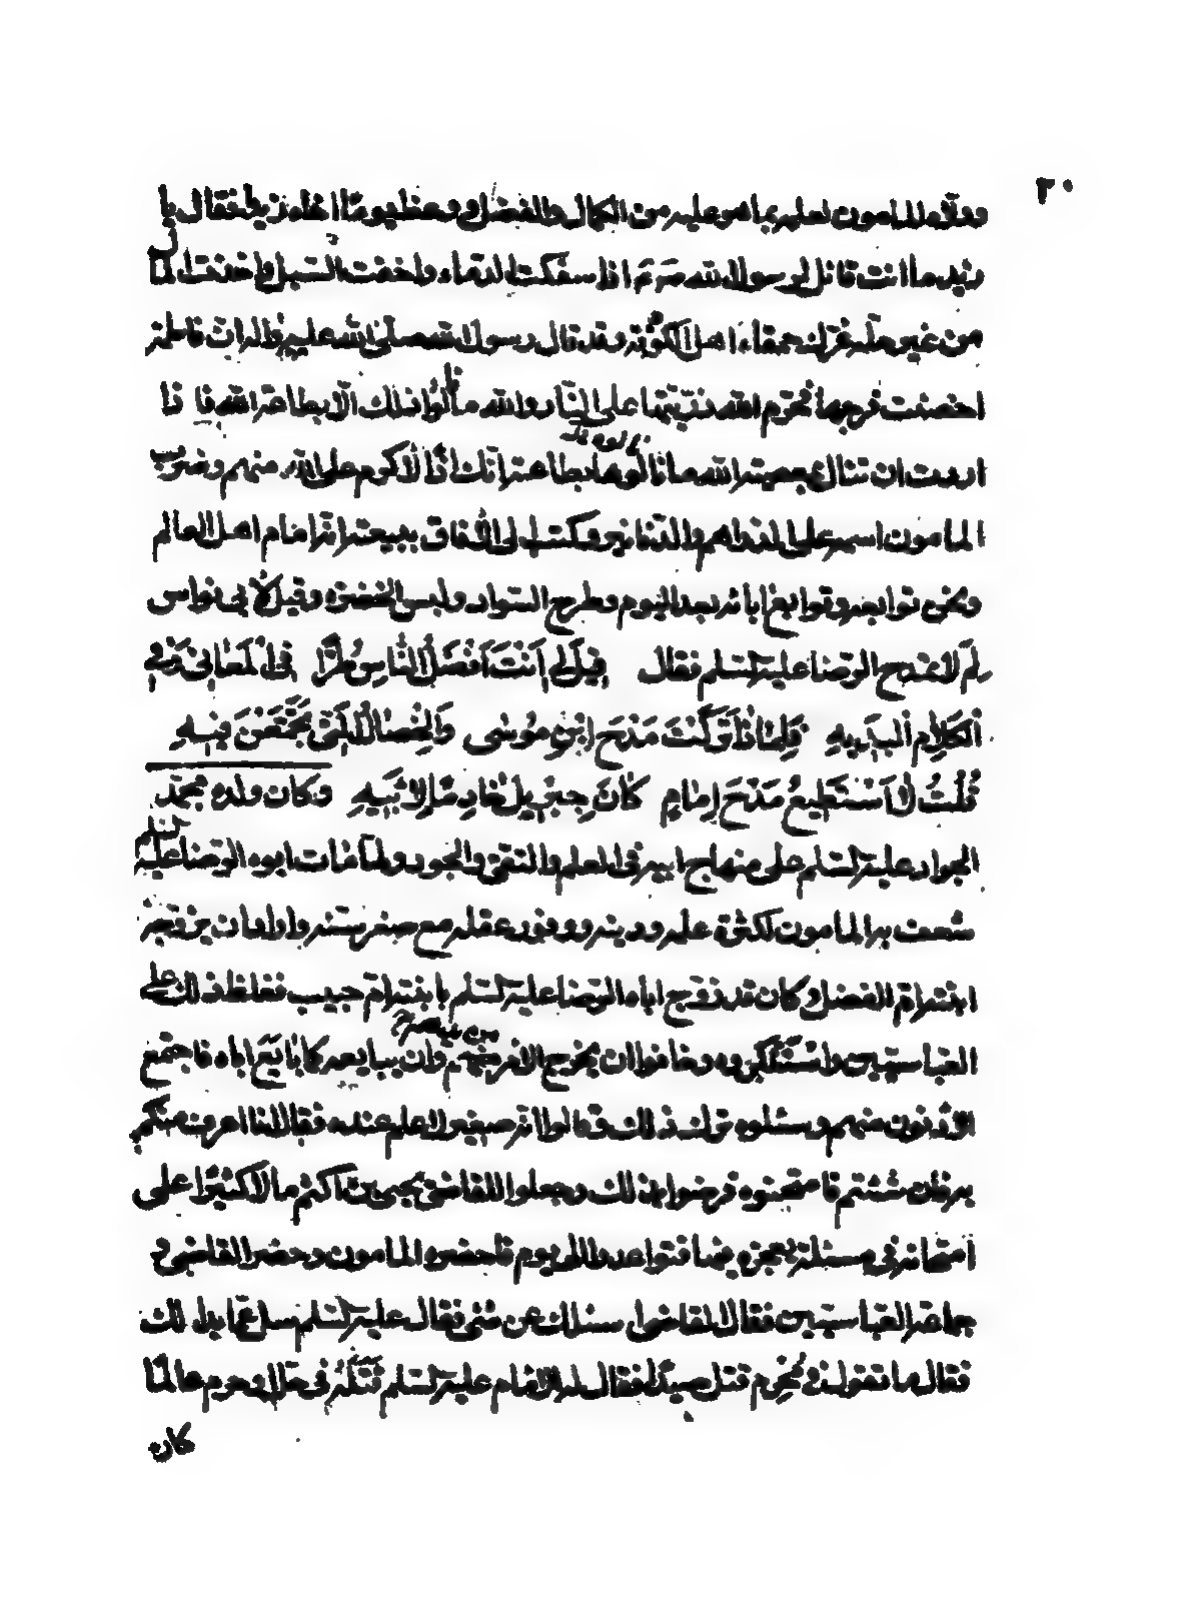 ٢٠
وولاه المامون لعلمه بما هو عليه من الكمال والفضل ووعظ يوما اخاه زيدا فقال يا
زيد ما انت قائل لرسول الله اذا سفكت الدماء واخفت السبل واخذت المال
من غير حله غرك حمقاء اهل الكوفة وقد قال رسول الله صلى الله عليه واله ان فاطمة
احصنت فرجها فحرم الله ذريتها على النار والله ما نالوا ذلك الا بطاعة الله فاذا
اردت ان تنال بمعصية الله ما نالوه بطاعته انك اذا لاكرم على الله منهم وضرب
المامون اسمه على الدراهم والدنانير وكتب الى الافاق ببيعته انه امام اهل العالم
ونحن توابعه وتوابع ابائه بعد اليوم وطرح السواد ولبس الخضرة وقيل لابي نواس
لم لا تمدح الرضا عليه السلم فقال قِيلَ لِي اَنْتَ اَفْضَلُ النَّاسِ طُرًّا فِي الْمَعٰانِي وَفِي
الْكَلاٰمِ الْبَدِيهِ فَلِمٰاذٰا تَرَكْتَ مَدْحَ ابْنِ مُوسٰى وَالْخِصٰالُ الَّتِي تَجَمَّعْنَ فِيهِ
قُلْتُ لاٰ اَسْتَطِيعُ مَدْحَ اِمٰامٍ كٰانَ جِبْرِيلُ خٰادِمًا لِاَبِيهِ وكان ولده محمد
الجواد عليه السلم على منهاج ابيه في العلم والتقى والجود ولما مات ابوه الرضا عليه السلم
شعف به المامون لكثرة علمه ودينه ووفور عقله مع صغر سنه واراد ان يزوجه
ابنته ام الفضل وكان قد زوج اباه الرضا عليه السلم بابنته ام حبيب فغلظ ذلك على
العباسيين واستنكروه وخافوا ان يخرج الامر منهم وان يبايعه كما بايع اباه فاجتمع
الادنون منهم وسئلوه ترك ذلك وقالوا انه صغير لا علم عنده فقال انا اعرف منكم
به فان شئتم فامتحنوه فرضوا بذلك وجعلوا للقاضي يحيى بن اكثم مالا كثيرا على
امتحانه في مسئلة يعجزه فيها فتواعدوا الى يوم فاحضره المامون وحضر القاضي و
جماعة العباسيين فقال القاضي اسئلك عن شئ فقال عليه السلم سل عما بدا لك
فقال ما تقول في مُحْرِم قتل صيدا فقال له الامام عليه السلم قَتَلَهُ في حل او حرم عالما
كان